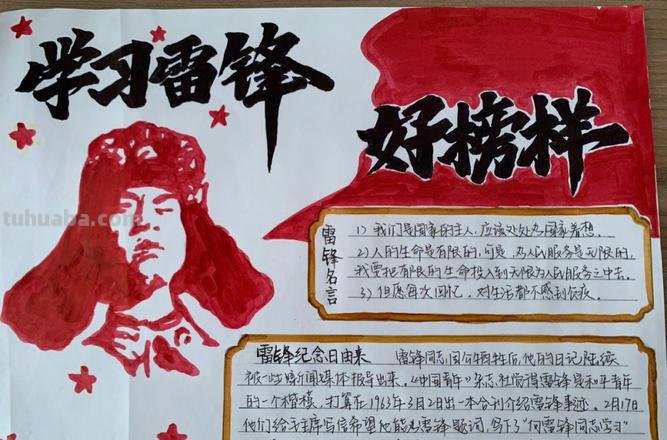 学习雷锋
好榜样
tuhuaba.com
雷锋名言
1) 我们是国家的主人，应该处处为国家着想。
2) 人的生命是有限的，可是，为人民服务是无限的，
我要把有限的生命投入到无限为人民服务之中去。
3) 但愿每次回忆，对生活都不感到负疚。
雷锋纪念日由来
雷锋同志因公牺牲后，他的日记陆续
被一些新闻媒体报导出来。《中国青年》杂志社觉得雷锋是和平青年
的一个楷模，打算在1963年3月2日出一本合刊介绍雷锋事迹。2月17日
他们给主席写信希望他能为雷锋题词，写下了“向雷锋同志学习”